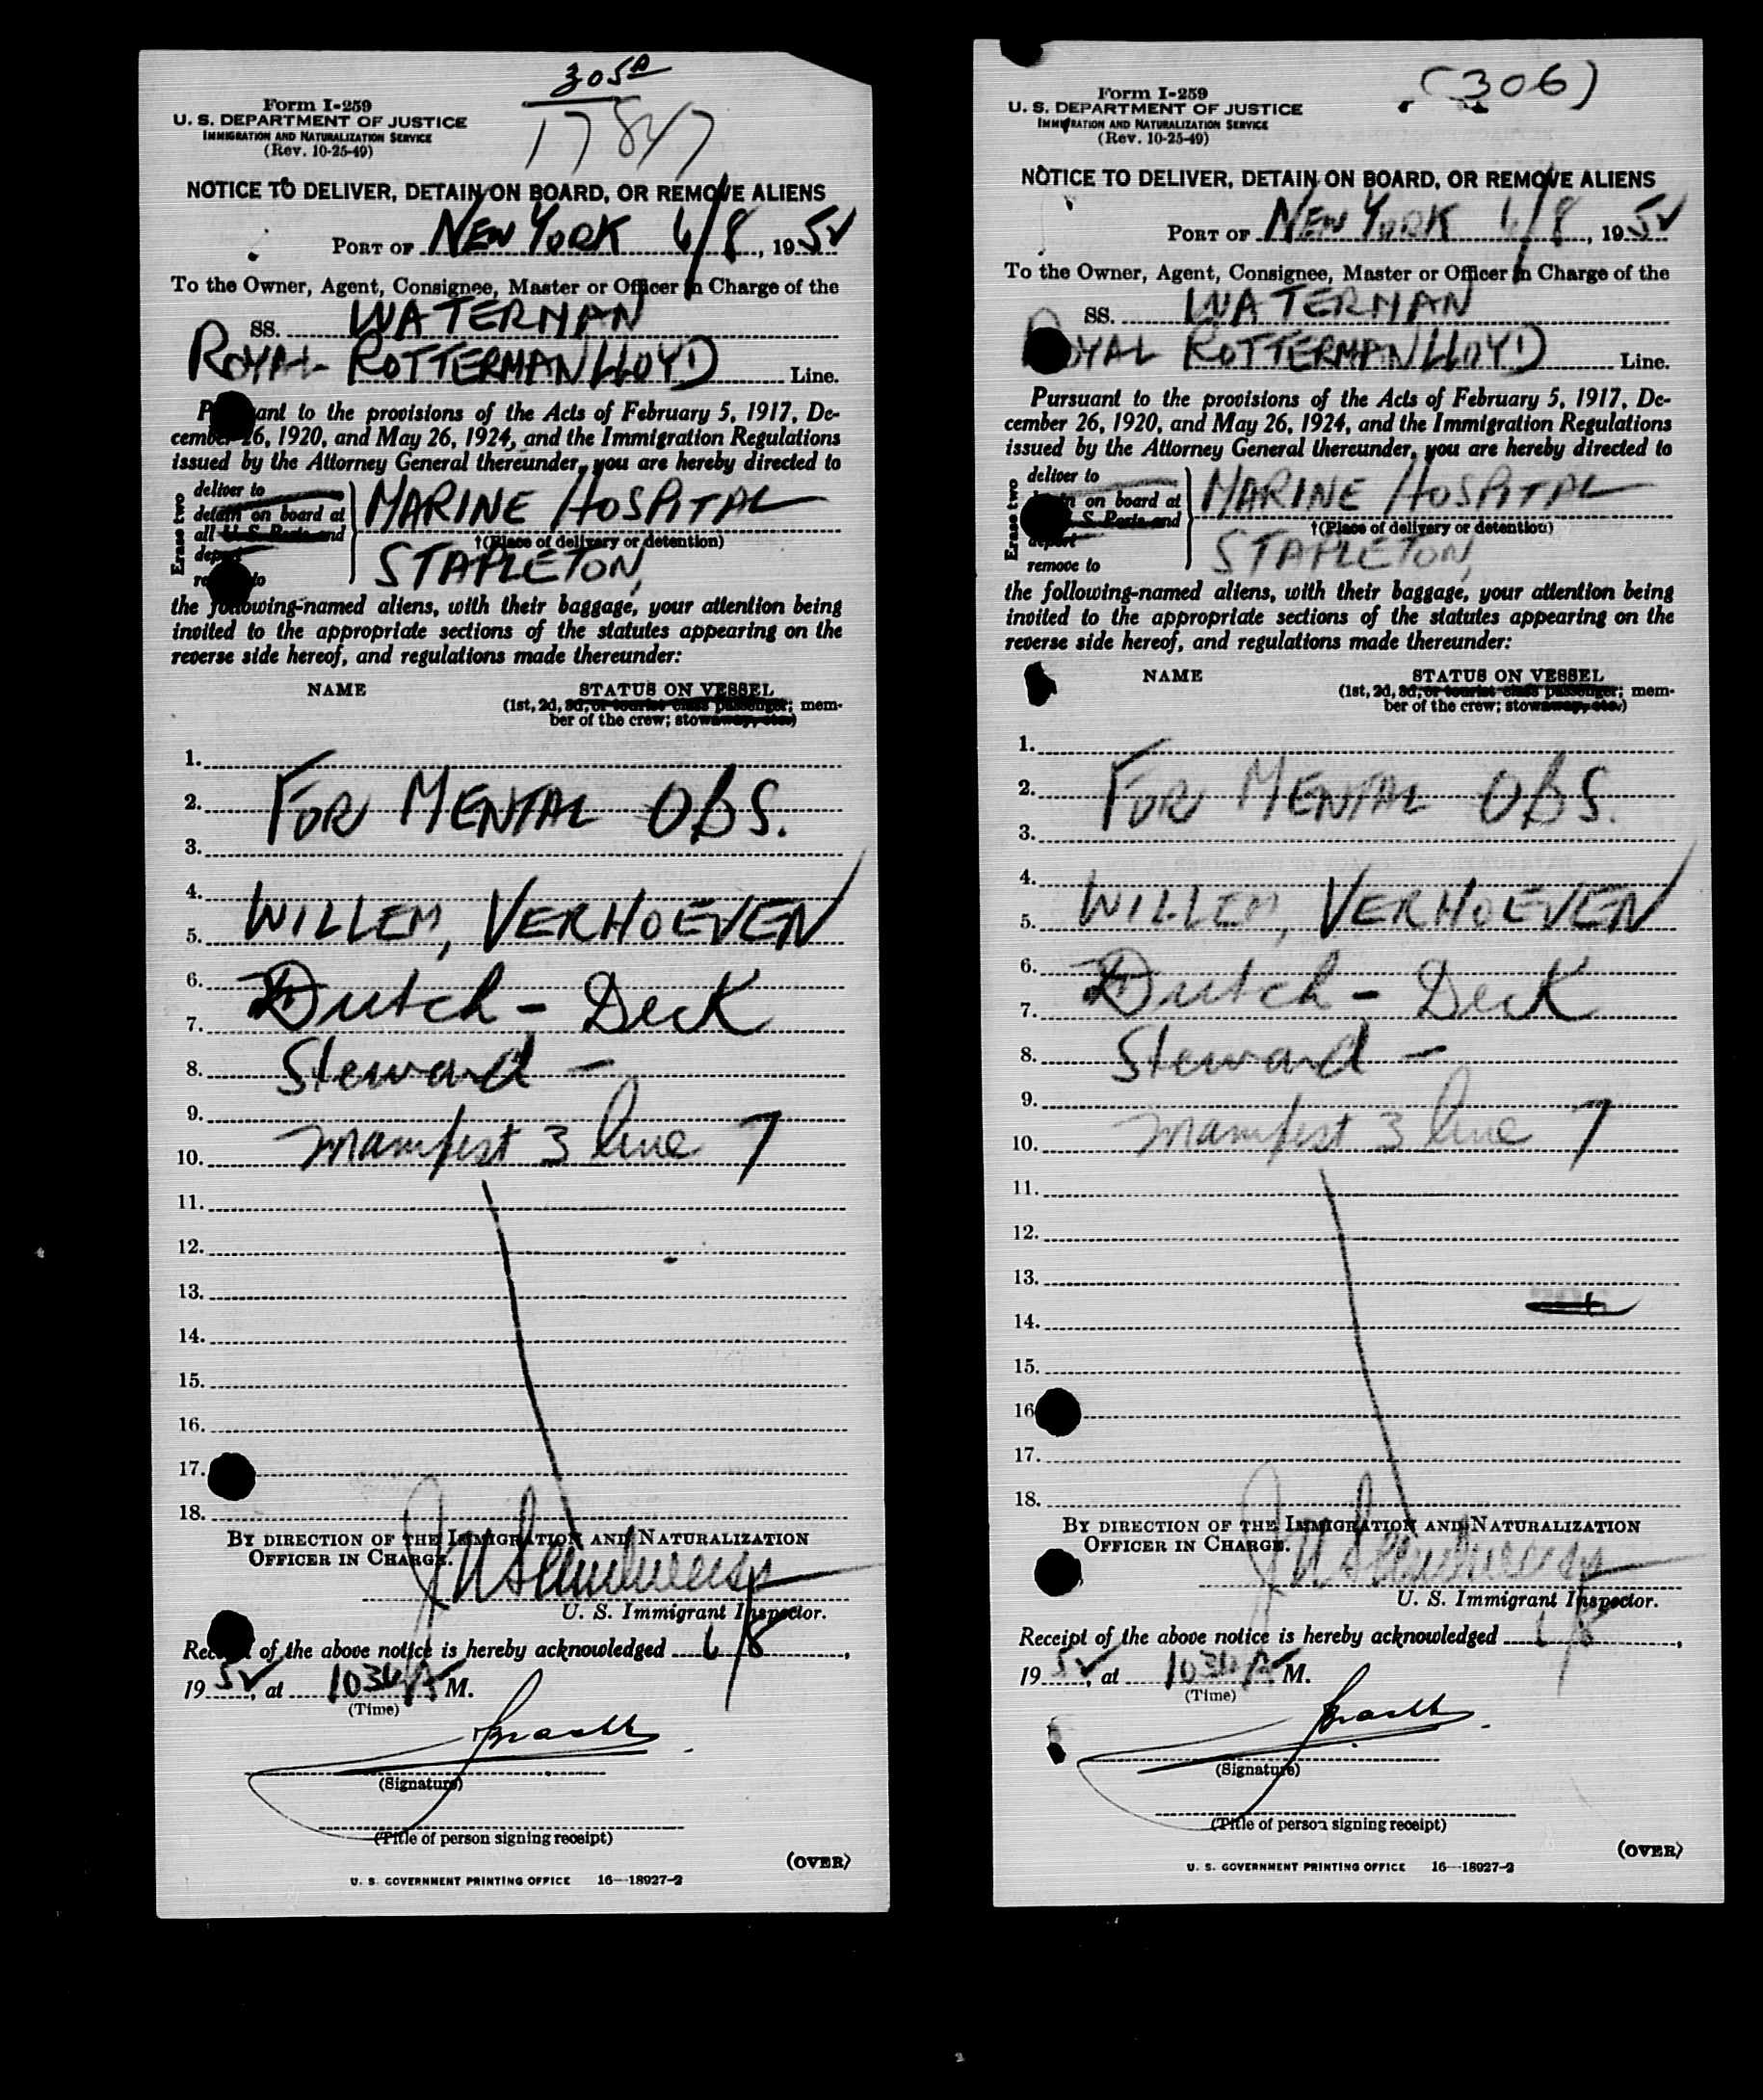 305A
17847
Form I-259
U. S. DEPARTMENT OF JUSTICE
IMMIGRATION AND NATURALIZATION SERVICE
(Rev. 10-25-49)
NOTICE TO DELIVER, DETAIN ON BOARD, OR REMOVE ALIENS
PORT OF NEW YORK 6/8, 1952
To the Owner, Agent, Consignee, Master or Officer in Charge of the
SS. WATERMAN
ROYAL ROTTERMAN LLOYD Line.
Pursuant to the provisions of the Acts of February 5, 1917, De-
cember 26, 1920, and May 26, 1924, and the Immigration Regulations
issued by the Attorney General thereunder, you are hereby directed to
Erase two
deliver to
detain on board at
all U. S. Ports and
deport
remove to
MARINE HOSPITAL
†(Place of delivery or detention)
STAPLETON,
the following-named aliens, with their baggage, your attention being
invited to the appropriate sections of the statutes appearing on the
reverse side hereof, and regulations made thereunder:
NAME STATUS ON VESSEL
(1st, 2d, 3d, or tourist class passenger; mem-
ber of the crew; stowaway, etc.)
1.
2. FOR MENTAL OBS.
3.
4.
5. WILLEM, VERHOEVEN
6.
7. Dutch - Deck
8. Steward -
9.
10. Manifest 3 line 7
11.
12.
13.
14.
15.
16.
17.
18.
BY DIRECTION OF THE IMMIGRATION AND NATURALIZATION
OFFICER IN CHARGE.
U. S. Immigrant Inspector.
Receipt of the above notice is hereby acknowledged 6/8,
1952, at 1030 A M.
(Time)
(Signature)
(Title of person signing receipt)
(OVER)
U. S. GOVERNMENT PRINTING OFFICE 16—18927-2
(306)
Form I-259
U. S. DEPARTMENT OF JUSTICE
IMMIGRATION AND NATURALIZATION SERVICE
(Rev. 10-25-49)
NOTICE TO DELIVER, DETAIN ON BOARD, OR REMOVE ALIENS
PORT OF NEW YORK 6/8, 1952
To the Owner, Agent, Consignee, Master or Officer in Charge of the
SS. WATERMAN
ROYAL ROTTERMAN LLOYD Line.
Pursuant to the provisions of the Acts of February 5, 1917, De-
cember 26, 1920, and May 26, 1924, and the Immigration Regulations
issued by the Attorney General thereunder, you are hereby directed to
Erase two
deliver to
detain on board at
U. S. Ports and
deport
remove to
MARINE HOSPITAL
†(Place of delivery or detention)
STAPLETON,
the following-named aliens, with their baggage, your attention being
invited to the appropriate sections of the statutes appearing on the
reverse side hereof, and regulations made thereunder:
NAME STATUS ON VESSEL
(1st, 2d, 3d, or tourist class passenger; mem-
ber of the crew; stowaway, etc.)
1.
2. FOR MENTAL OBS.
3.
4.
5. WILLEM, VERHOEVEN
6.
7. Dutch - Deck
8. Steward -
9.
10. Manifest 3 line 7
11.
12.
13.
14.
15.
16
17.
18.
BY DIRECTION OF THE IMMIGRATION AND NATURALIZATION
OFFICER IN CHARGE.
U. S. Immigrant Inspector.
Receipt of the above notice is hereby acknowledged 6/8,
1952, at 1030 A M.
(Time)
(Signature)
(Title of person signing receipt)
(OVER)
U. S. GOVERNMENT PRINTING OFFICE 16—18927-2